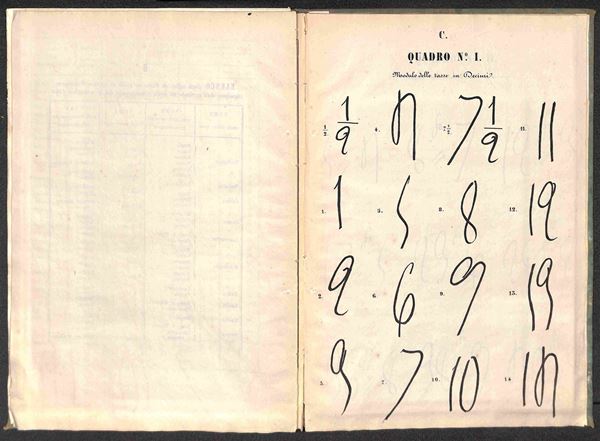 C.
QUADRO Nº I.
Modulo delle tasse in Decimi.
1/2. 1/2 4. 4 7 1/2. 7 1/2 11. 11
1. 1 5. 5 8. 8 12. 12
2. 2 6. 6 9. 9 13. 13
3. 3 7. 7 10. 10 14. 14